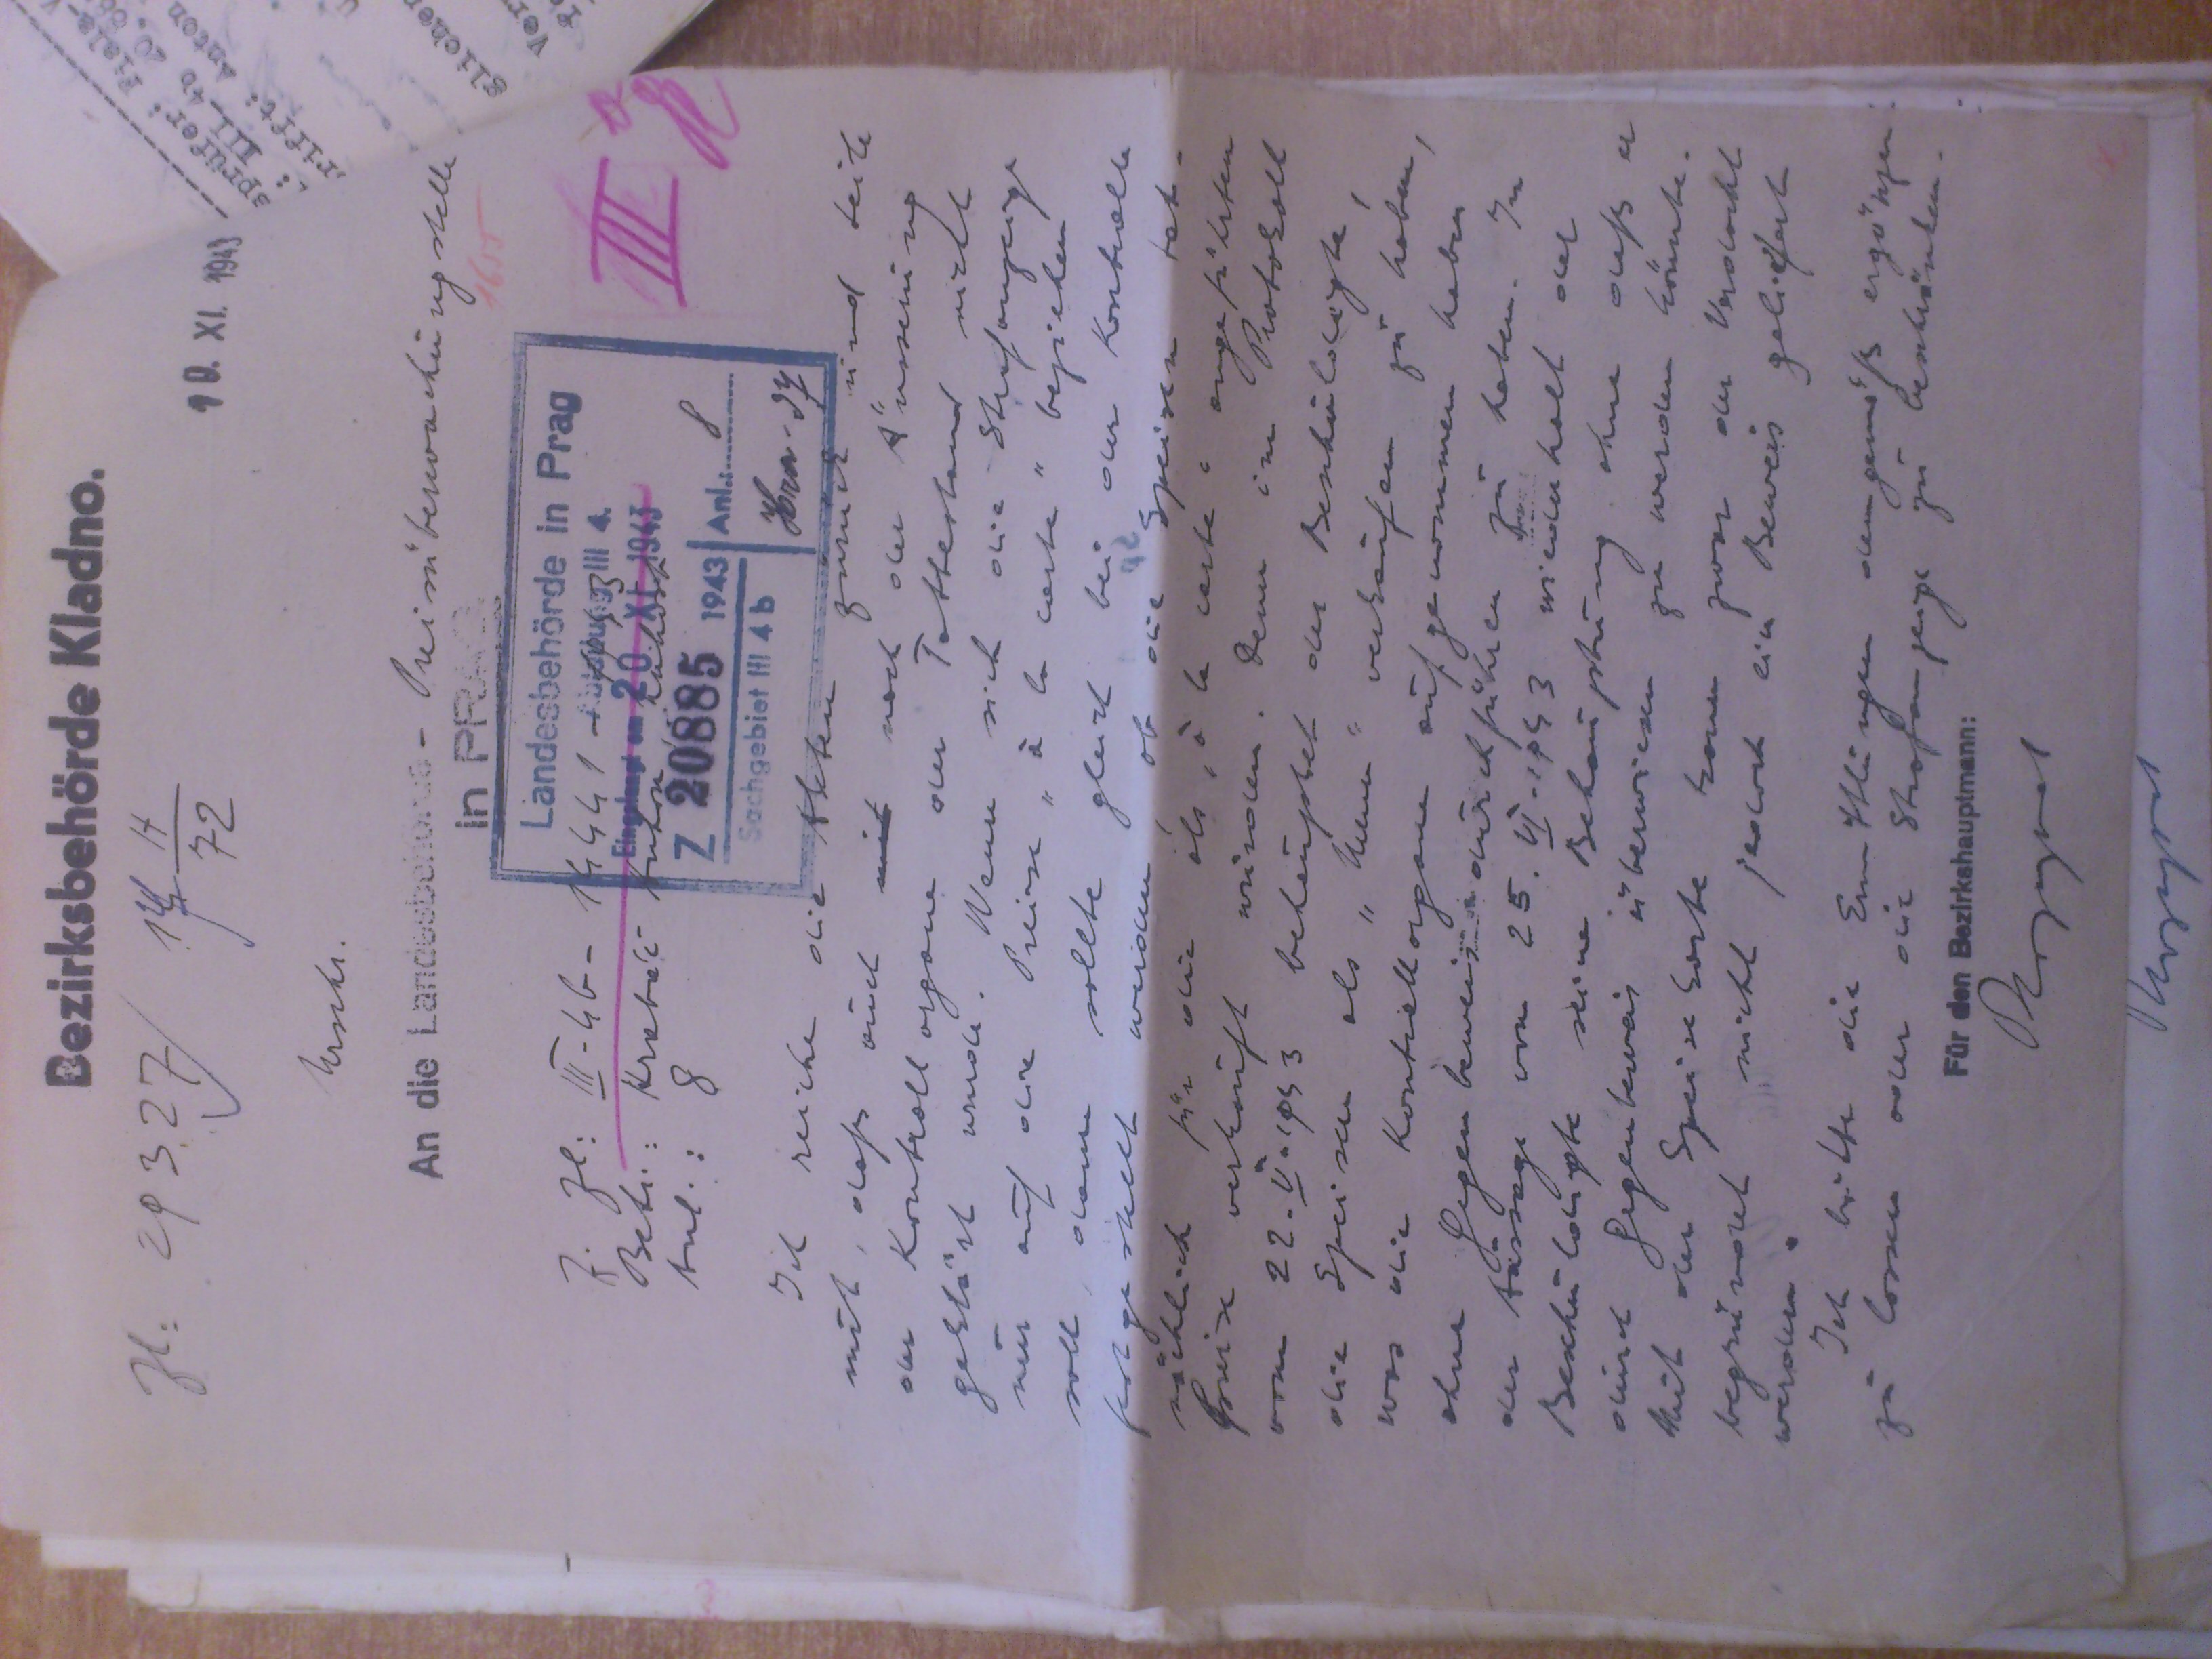 Bezirksbehörde Kladno.
Zl: 29327 14 H
72
10. XI. 1943
Urschr.
An die Landesbehörde - Preisüberwachungstelle
in PRAG
1655
Landesbehörde in Prag
Abteilung III 4.
Eingelangt am 20. XI. 1943
Z 20885 1943 Anl.: 8
Sachgebiet III 4 b
Hra - 37
III
z. Zl: III-4b- 14441 - 1943
Betr.: Hrabáč Anton,
Anl.: 8
Ich reiche die Akten zurück und teile
mit, daß auch mit nach der Äusserung
der Kontrollorgane der Tatbestand nicht
geklärt wurde. Wenn sich die Strafanzeige
nur auf die Preise „à la carte" beziehen
soll, dann sollte gleich bei der Kontrolle
festgestellt werden, ob die Speisen tat-
sächlich für die als „à la carte" angeführten
Preise verkauft wurden. Denn im Protokoll
vom 22. V. 1943 behauptet der Beschuldigte,
die Speisen als „Menu" verkaufen zu haben,
was die Kontrollorgane aufgenommen haben
ohne Gegenbeweis durchführen zu haben. In
der Aussage vom 25. VI. 1943 wiederholt der
Beschuldigte seine Behauptung ohne daß er
durch Gegenbeweis überwiesen zu werden könnte.
Mit der Speisekarte kann zwar der Verdacht
begründet nicht jedoch ein Beweis geliefert
werden.
Ich bitte die Ermittlungen demgemäß ergänzen
zu lassen oder die Strafanzeige zu beschränken.
Für den Bezirkshauptmann:
sprüfer: Fiala-
: III 4b 20.88
rifft: Anton
glichen
Ver